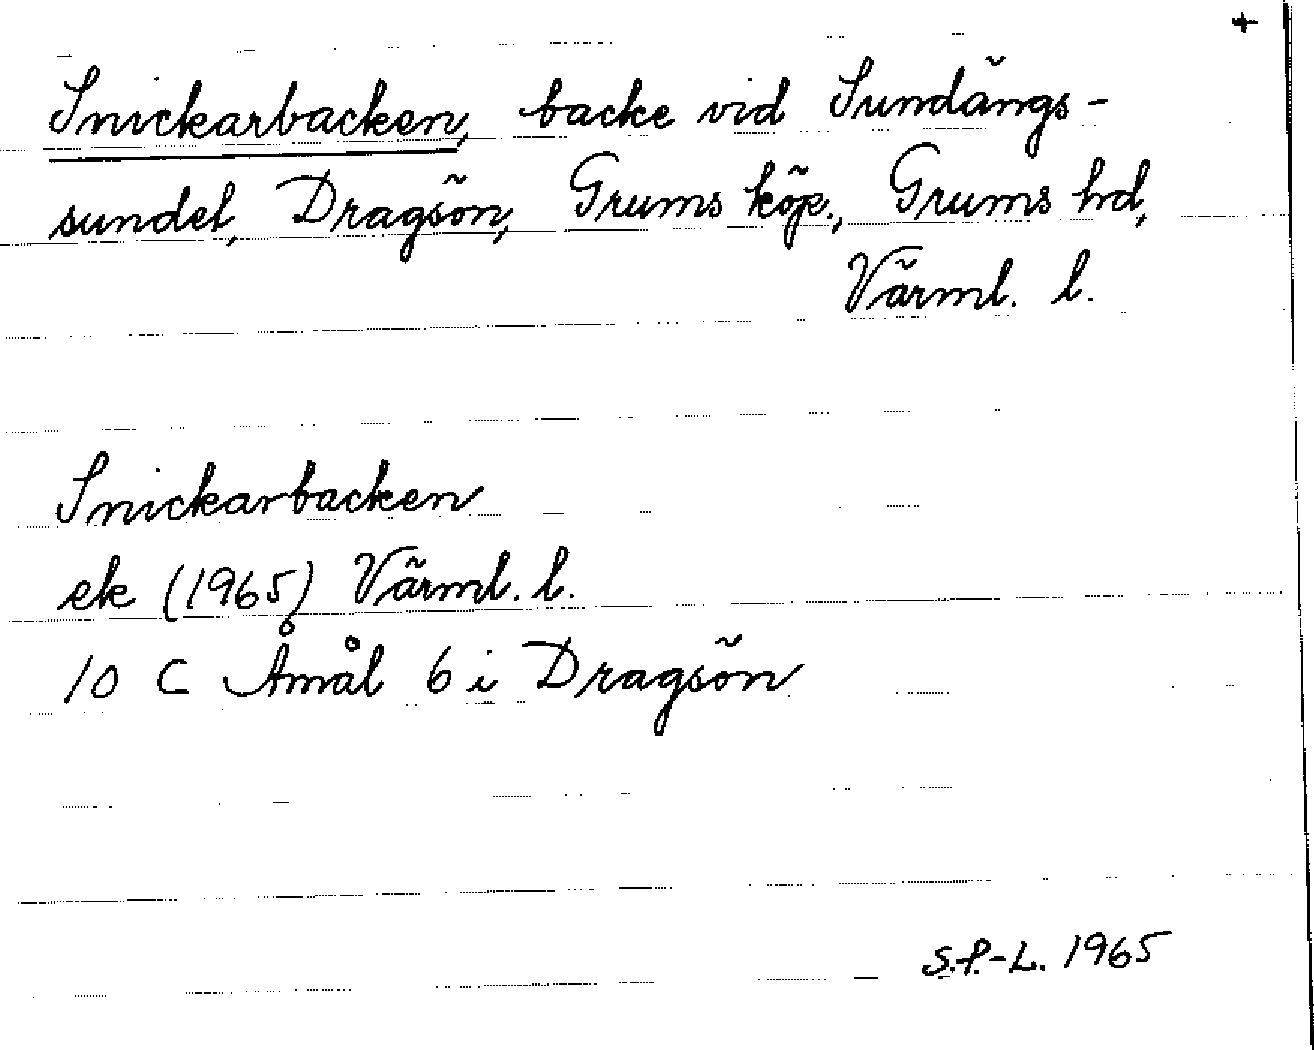 +
Snickarbacken, backe vid Sundängs-
sundet, Dragsön, Grums köp., Grums hd,
Värml. l.
Snickarbacken
ek (1965) Värml. l.
10 C Åmål 6 i Dragsön
S.P.-L. 1965